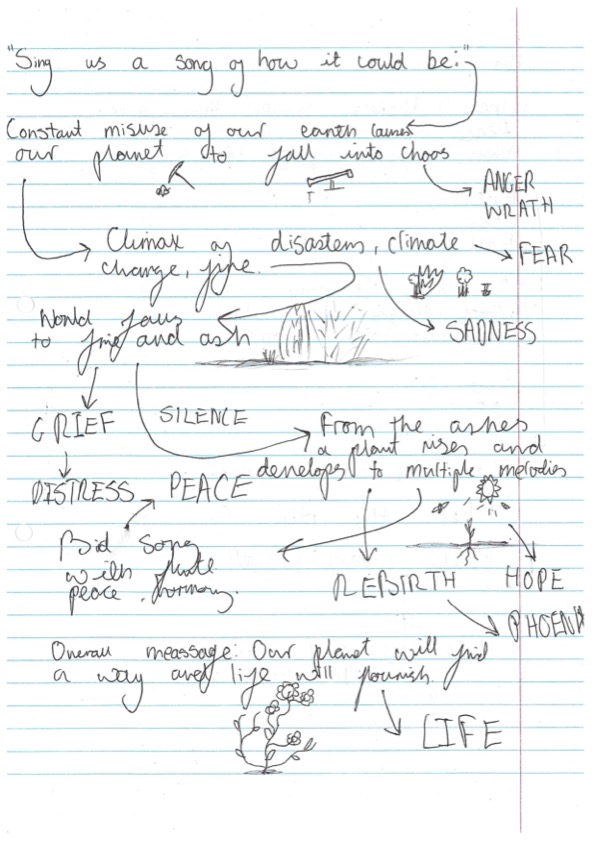 "Sing us a song of how it could be:"
Constant misuse of our earth causes
our planet to fall into choas
ANGER
WRATH
Climax of disasters, climate
change, fire.
FEAR
SADNESS
World falls
to fire and ash
GRIEF
SILENCE
From the ashes
a plant rises and
develops to multiple melodies
DISTRESS
PEACE
Bird song
with flute
peace. harmony.
REBIRTH
HOPE
PHOENIX
Overall meassage: Our planet will find
a way and life will flourish.
LIFE